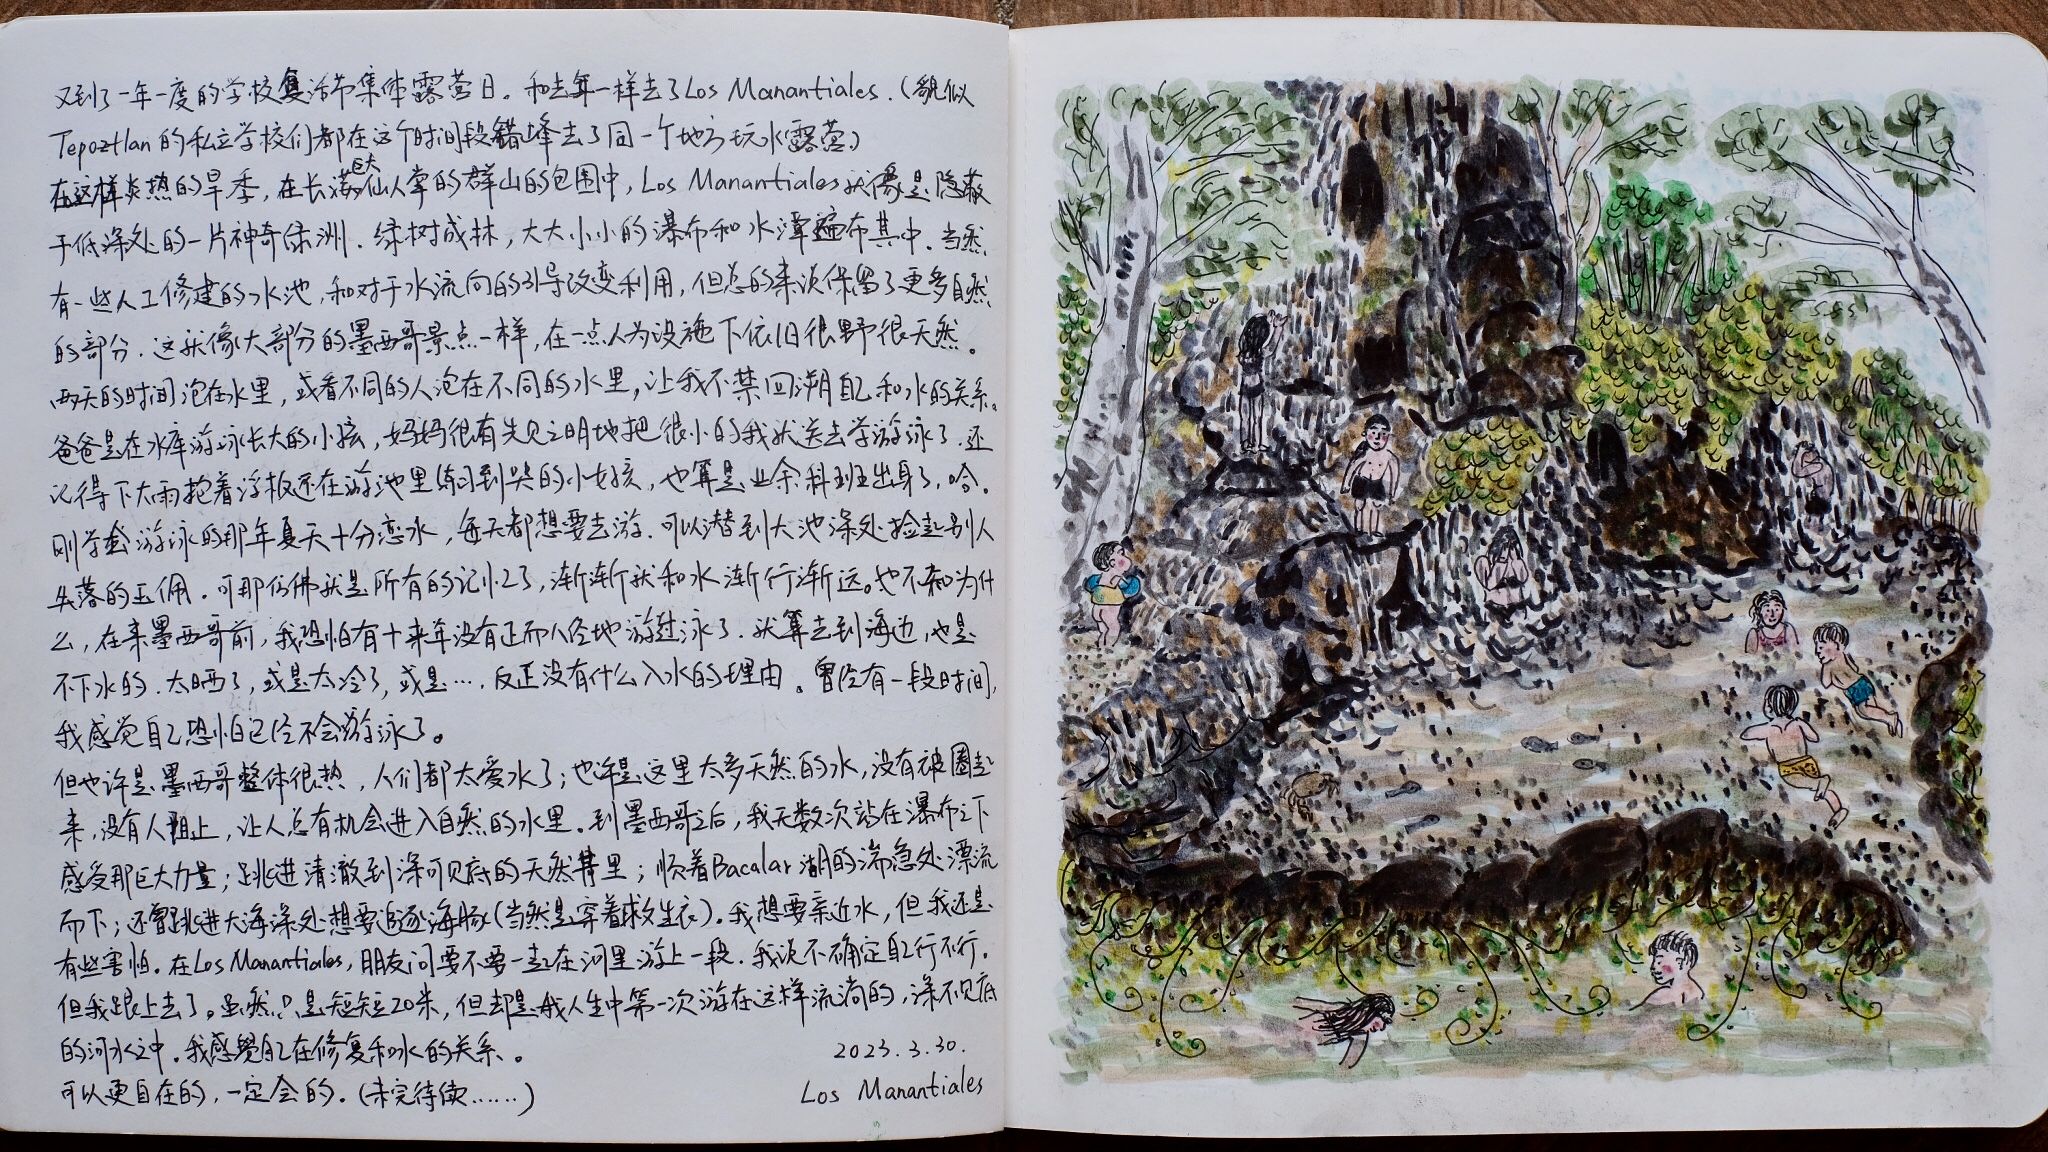 又到了一年一度的学校复活节集体露营日。和去年一样去了Los Manantiales.(貌似
Tepoztlan的私立学校们都在这个时间段错峰去了同一个地方玩水露营)
在这样炎热的旱季,在长满巨大仙人掌的群山的包围中,Los Manantiales就像是隐蔽
于低深处的一片神奇绿洲.绿树成林,大大小小的瀑布和水潭遍布其中.当然
有一些人工修建的水池,和对于水流向的引导改变利用,但总的来说保留了更多自然
的部分.这就像大部分的墨西哥景点一样,在一点人为设施下依旧很野很天然。
两天的时间泡在水里,或看不同的人泡在不同的水里,让我不禁回溯自己和水的关系。
爸爸是在水库游泳长大的小孩,妈妈很有先见之明地把很小的我就送去学游泳了.还
记得下大雨抱着浮板还在游池里练习到哭的小女孩,也算是业余科班出身了,哈。
刚学会游泳的那年夏天十分恋水,每天都想要去游.可以潜到大池深处捡起别人
失落的玉佩.可那仿佛就是所有的记忆了,渐渐就和水渐行渐远。也不知为什
么,在来墨西哥前,我恐怕有十来年没有正而八经地游过泳了.就算去到海边,也是
不下水的.太晒了,或是太冷了,或是….反正没有什么入水的理由。曾经有一段时间,
我感觉自己恐怕已经不会游泳了。
但也许是墨西哥整体很热,人们都太爱水了;也许是这里太多天然的水,没有被圈起
来,没有人阻止,让人总有机会进入自然的水里.到墨西哥之后,我无数次站在瀑布之下
感受那巨大力量;跳进清澈到深可见底的天然井里;顺着Bacalar湖的湍急处漂流
而下;还曾跳进大海深处想要追逐海豚(当然是穿着救生衣).我想要亲近水,但我还是
有些害怕.在Los Manantiales,朋友问要不要一起在河里游上一段.我说不确定自己行不行.
但我跟上去了。虽然只是短短20米,但却是我人生中第一次游在这样流淌的,深不见底
的河水之中.我感觉自己在修复和水的关系。
可以更自在的,一定会的.(未完待续……)
2023.3.30.
Los Manantiales